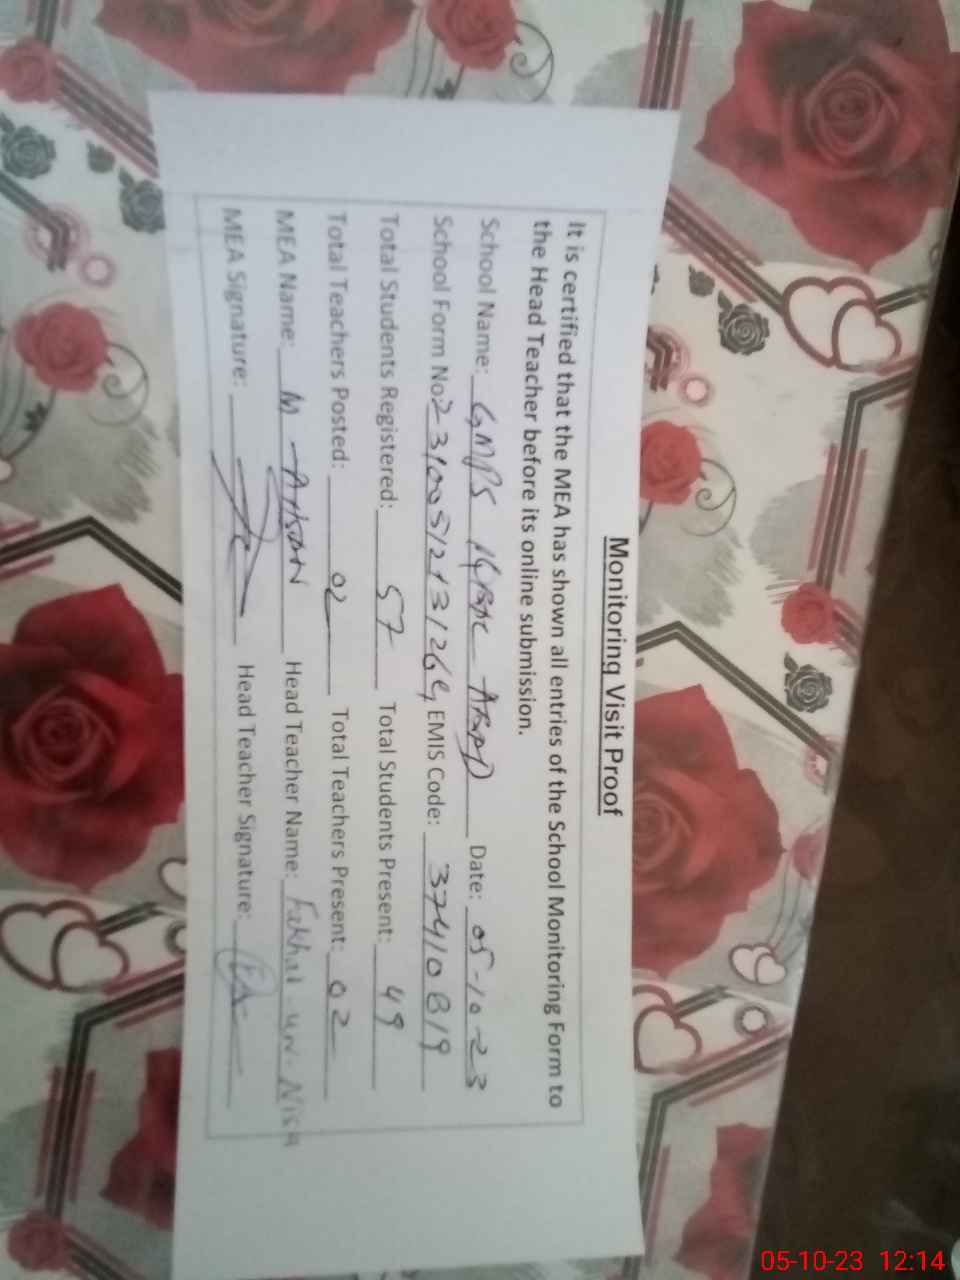 Monitoring Visit Proof
It is certified that the MEA has shown all entries of the School Monitoring Form to
the Head Teacher before its online submission.
School Name: GMPS Date: 05-10-23
School Form No: EMIS Code: 37410819
Total Students Registered: 57 Total Students Present: 49
Total Teachers Posted: 02 Total Teachers Present: 02
MEA Name: M-AHSAN Head Teacher Name: Fakhal un-Nisa
MEA Signature: Head Teacher Signature:
05-10-23 12:14